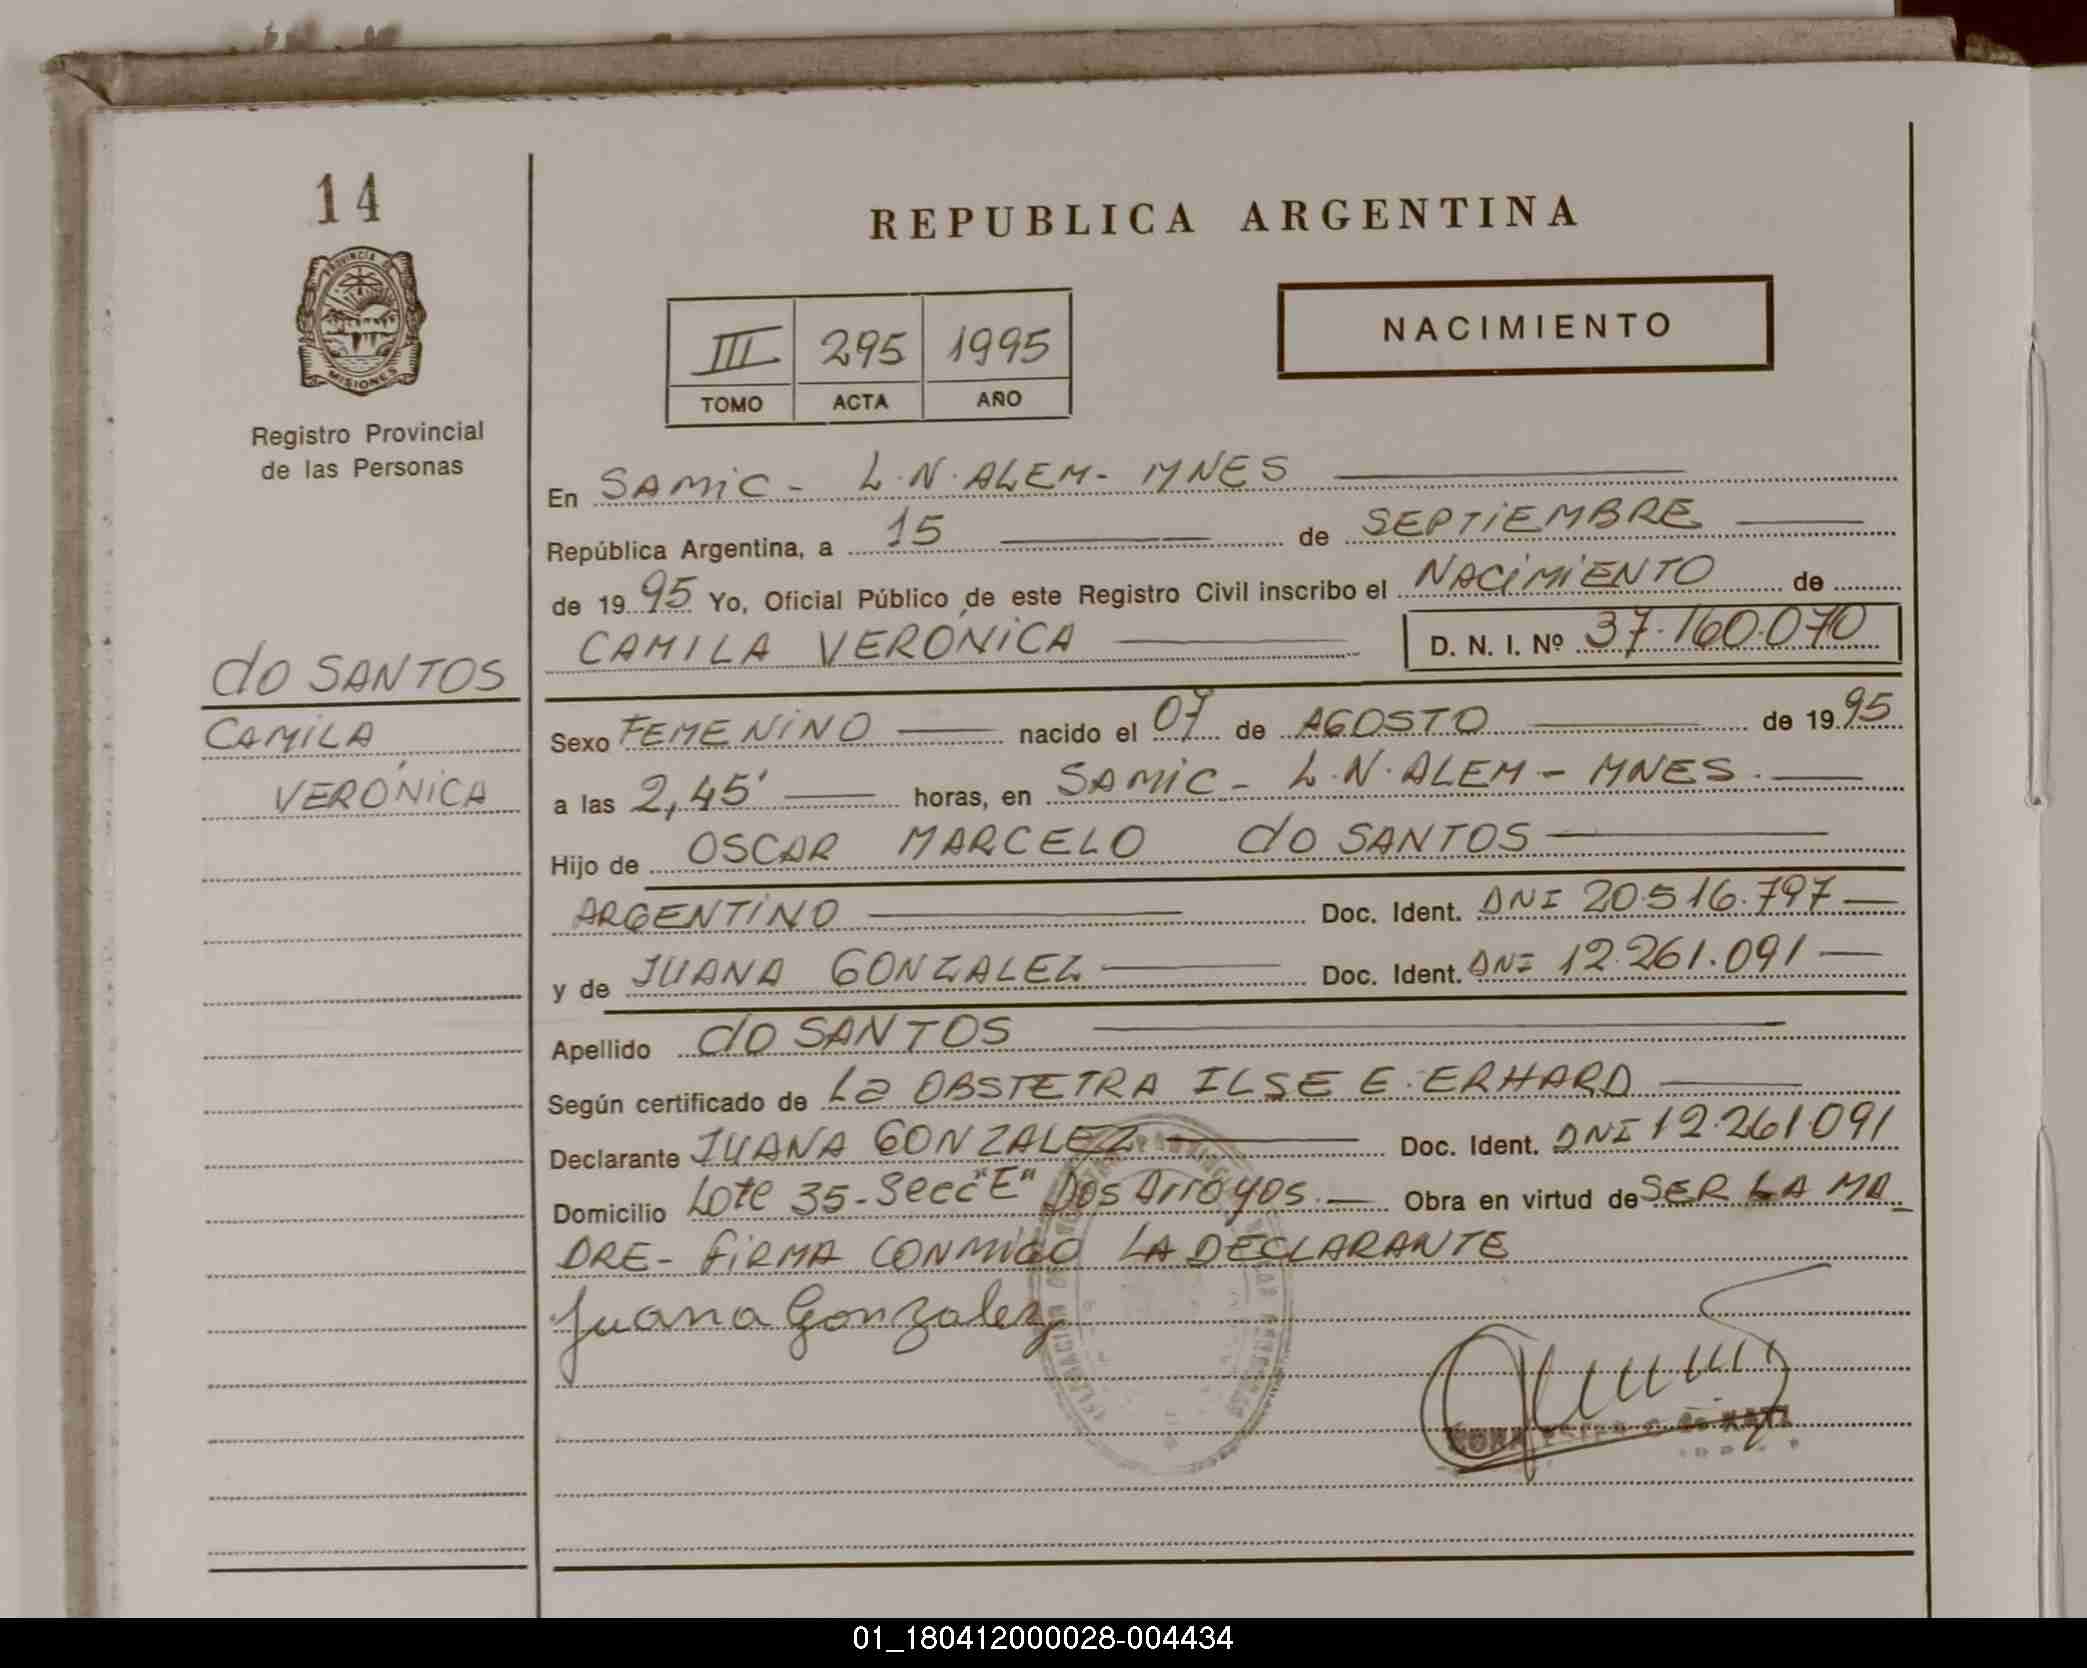 14
PROVINCIA DE
MISIONES
Registro Provincial
de las Personas
do SANTOS
CAMILA
VERÓNICA
REPUBLICA ARGENTINA
III 295 1995
TOMO ACTA AÑO
NACIMIENTO
En SAMIC - L.N. ALEM - MNES
República Argentina, a 15 de SEPTIEMBRE
de 1995 Yo, Oficial Público de este Registro Civil inscribo el NACIMIENTO de
CAMILA VERÓNICA D. N. I. Nº 37.160.070
Sexo FEMENINO nacido el 07 de AGOSTO de 1995
a las 2,45' horas, en SAMIC - L.N. ALEM - MNES.
Hijo de OSCAR MARCELO do SANTOS
ARGENTINO Doc. Ident. DNI 20.516.797
y de JUANA GONZALEZ Doc. Ident. DNI 12.261.091
Apellido do SANTOS
Según certificado de La OBSTETRA ILSE E. ERHARD
Declarante JUANA GONZALEZ Doc. Ident. DNI 12.261.091
Domicilio Lote 35 - Secc "E" Dos Arroyos. Obra en virtud de SER LA MA
DRE - FIRMA CONMIGO LA DECLARANTE
Juana Gonzalez
01_180412000028-004434